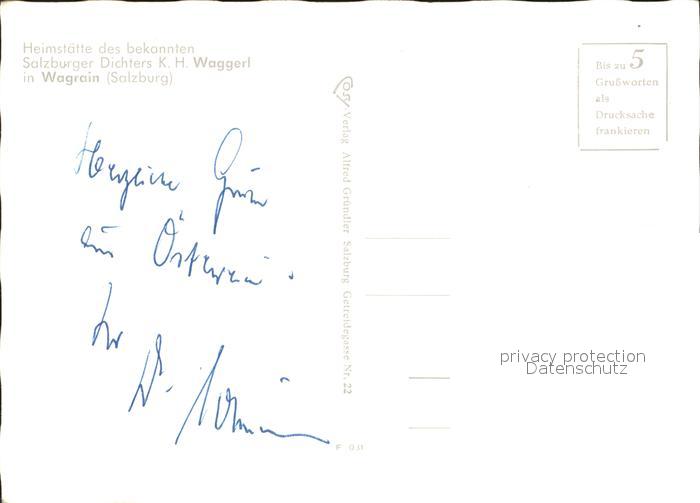 Heimstätte des bekannten
Salzburger Dichters K. H. Waggerl
in Wagrain (Salzburg)
Bis zu 5
Grußworten
als
Drucksache
frankieren
Cosy-Verlag Alfred Gründler Salzburg Getreidegasse Nr. 22
Herzliche Grüße
aus Österreich.
Ihr
Dr.
privacy protection
Datenschutz